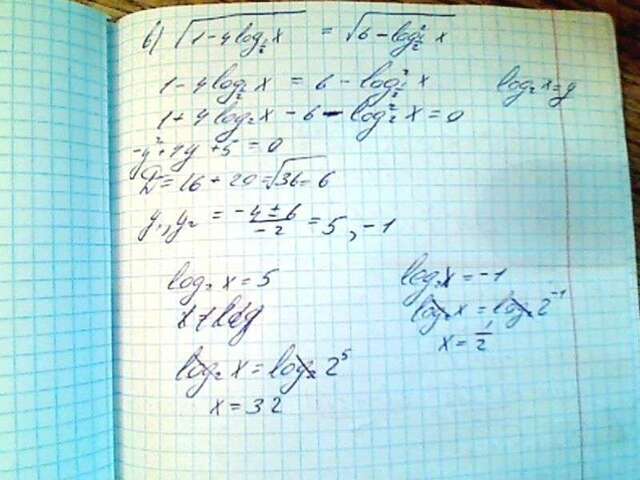 в) √(1 - 4 log_{1/2} x) = √(6 - log²_{1/2} x)
1 - 4 log_{1/2} x = 6 - log²_{1/2} x    log₂ x = y
1 + 4 log₂ x - 6 - log²₂ x = 0
-y² + 4y + 5 = 0
D = 16 + 20 = √36 = 6
y₁, y₂ = (-4 ± 6)/(-2) = 5, -1
log₂ x = 5    log₂ x = -1
log₂ x = log₂ 2⁻¹
x = 1/2
log₂ x = log₂ 2⁵
x = 32